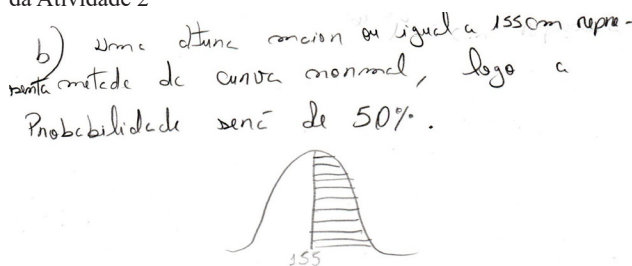 da Atividade 2
b) Uma altura maior ou igual a 155cm repre-
senta metade da curva normal, logo a
Probabilidade será de 50%.
155